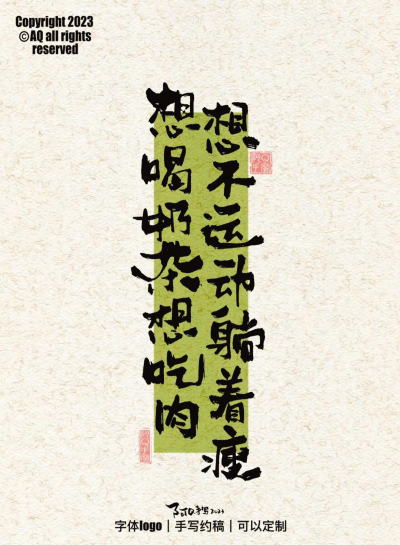 Copyright 2023
©AQ all rights
reserved
想喝奶茶想吃肉
想不运动躺着瘦
字体logo｜手写约稿｜可以定制